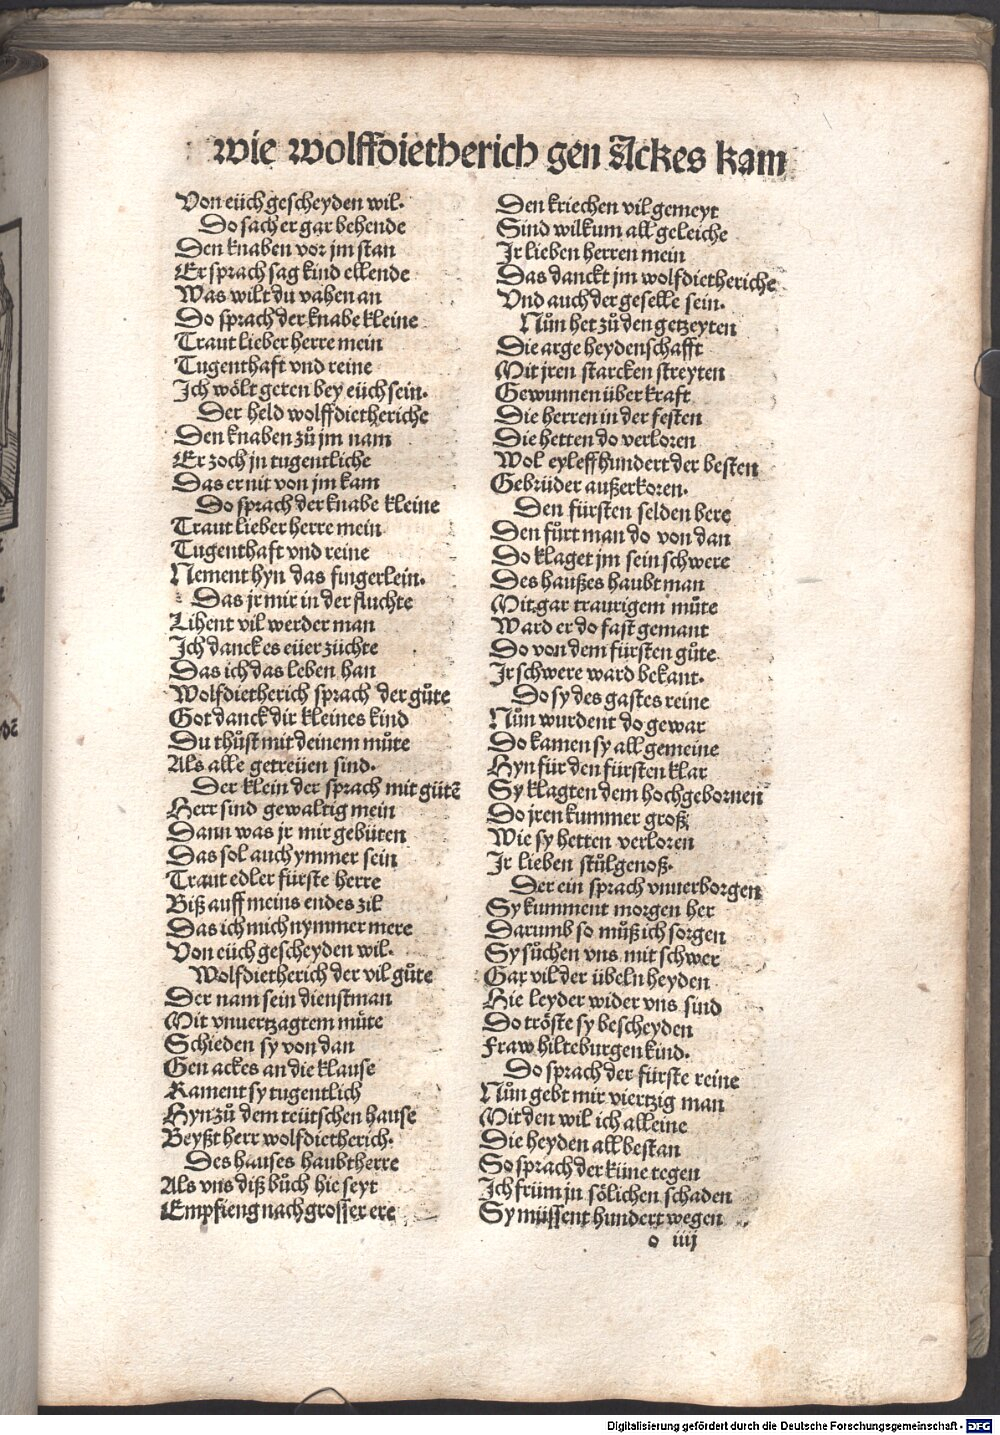 wie wolffdietherich gen Ackes kam
Von eüch gescheyden wil.
Do sach er gar behende
Den knaben vor jm stan
Er sprach sag kind ellende
Was wilt du vahen an
Do sprach der knabe kleine
Traut lieber herre mein
Tugenthaft vnd reine
Ich wölt geren bey eüch sein.
Der held wolffdietheriche
Den knaben zů jm nam
Er zoch jn tugentliche
Das er nit von jm kam
Do sprach der knabe kleine
Traut lieber herre mein
Tugenthaft vnd reine
Nement hyn das fingerlein.
Das jr mir in der fluchte
Lihent vil werder man
Ich danck es eüer züchte
Das ich das leben han
Wolfdietherich sprach der gůte
Got danck dir kleines kind
Du thůst mit deinem můte
Als alle getreüen sind.
Der klein der sprach mit gütē
Herr sind gewaltig mein
Dann was jr mir gebüten
Das sol auch ymmer sein
Traut edler fürste herre
Biß auff meins endes zil
Das ich mich nymmer mere
Von eüch gescheyden wil.
Wolfdietherich der vil gůte
Der nam sein dienstman
Mit vnuertzagtem můte
Schieden sy von dan
Gen ackes an die klause
Kament sy tugentlich
Hyn zů dem teütschen hause
Beyßt herr wolfdietherich.
Des hauses haubtherre
Als vns diß bůch hie seyt
Empfieng nach grosser ere
Den kriechen vil gemeyt
Sind wilkum all geleiche
Ir lieben herren mein
Das danckt jm wolfdietheriche
Vnd auch der geselle sein.
Nůn het zů den getzeyten
Die arge heydenschafft
Mit jren starcken streyten
Gewunnen über kraft
Die herren in der festen
Die hetten do verloren
Wol eyleff hundert der besten
Gebrüder außerkoren.
Den fürsten selden bere
Den fůrt man do von dan
Do klaget jm sein schwere
Des haußes haubt man
Mit gar traurigem můte
Ward er do fast gemant
Do von dem fürsten gůte
Ir schwere ward bekant.
Do sy des gastes reine
Nůn wurdent do gewar
Do kamen sy all gemeine
Hyn für den fürsten klar
Sy klagten dem hochgebornen
Do jren kummer groß
Wie sy hetten verloren
Ir lieben stůlgenoß.
Der ein sprach vnuerborgen
Sy kumment morgen her
Darumb so můß ich sorgen
Sy sůchen vns mit schwer
Gar vil der übeln heyden
Hie leyder wider vns sind
Do tröste sy bescheyden
Fraw hilteburgen kind.
Do sprach der fürste reine
Nůn gebt mir viertzig man
Mit den wil ich alleine
Die heyden all bestan
So sprach der küne tegen
Ich früm jn sölichen schaden
Sy müssent hundert wegen
o iiij
Digitalisierung gefördert durch die Deutsche Forschungsgemeinschaft - DFG